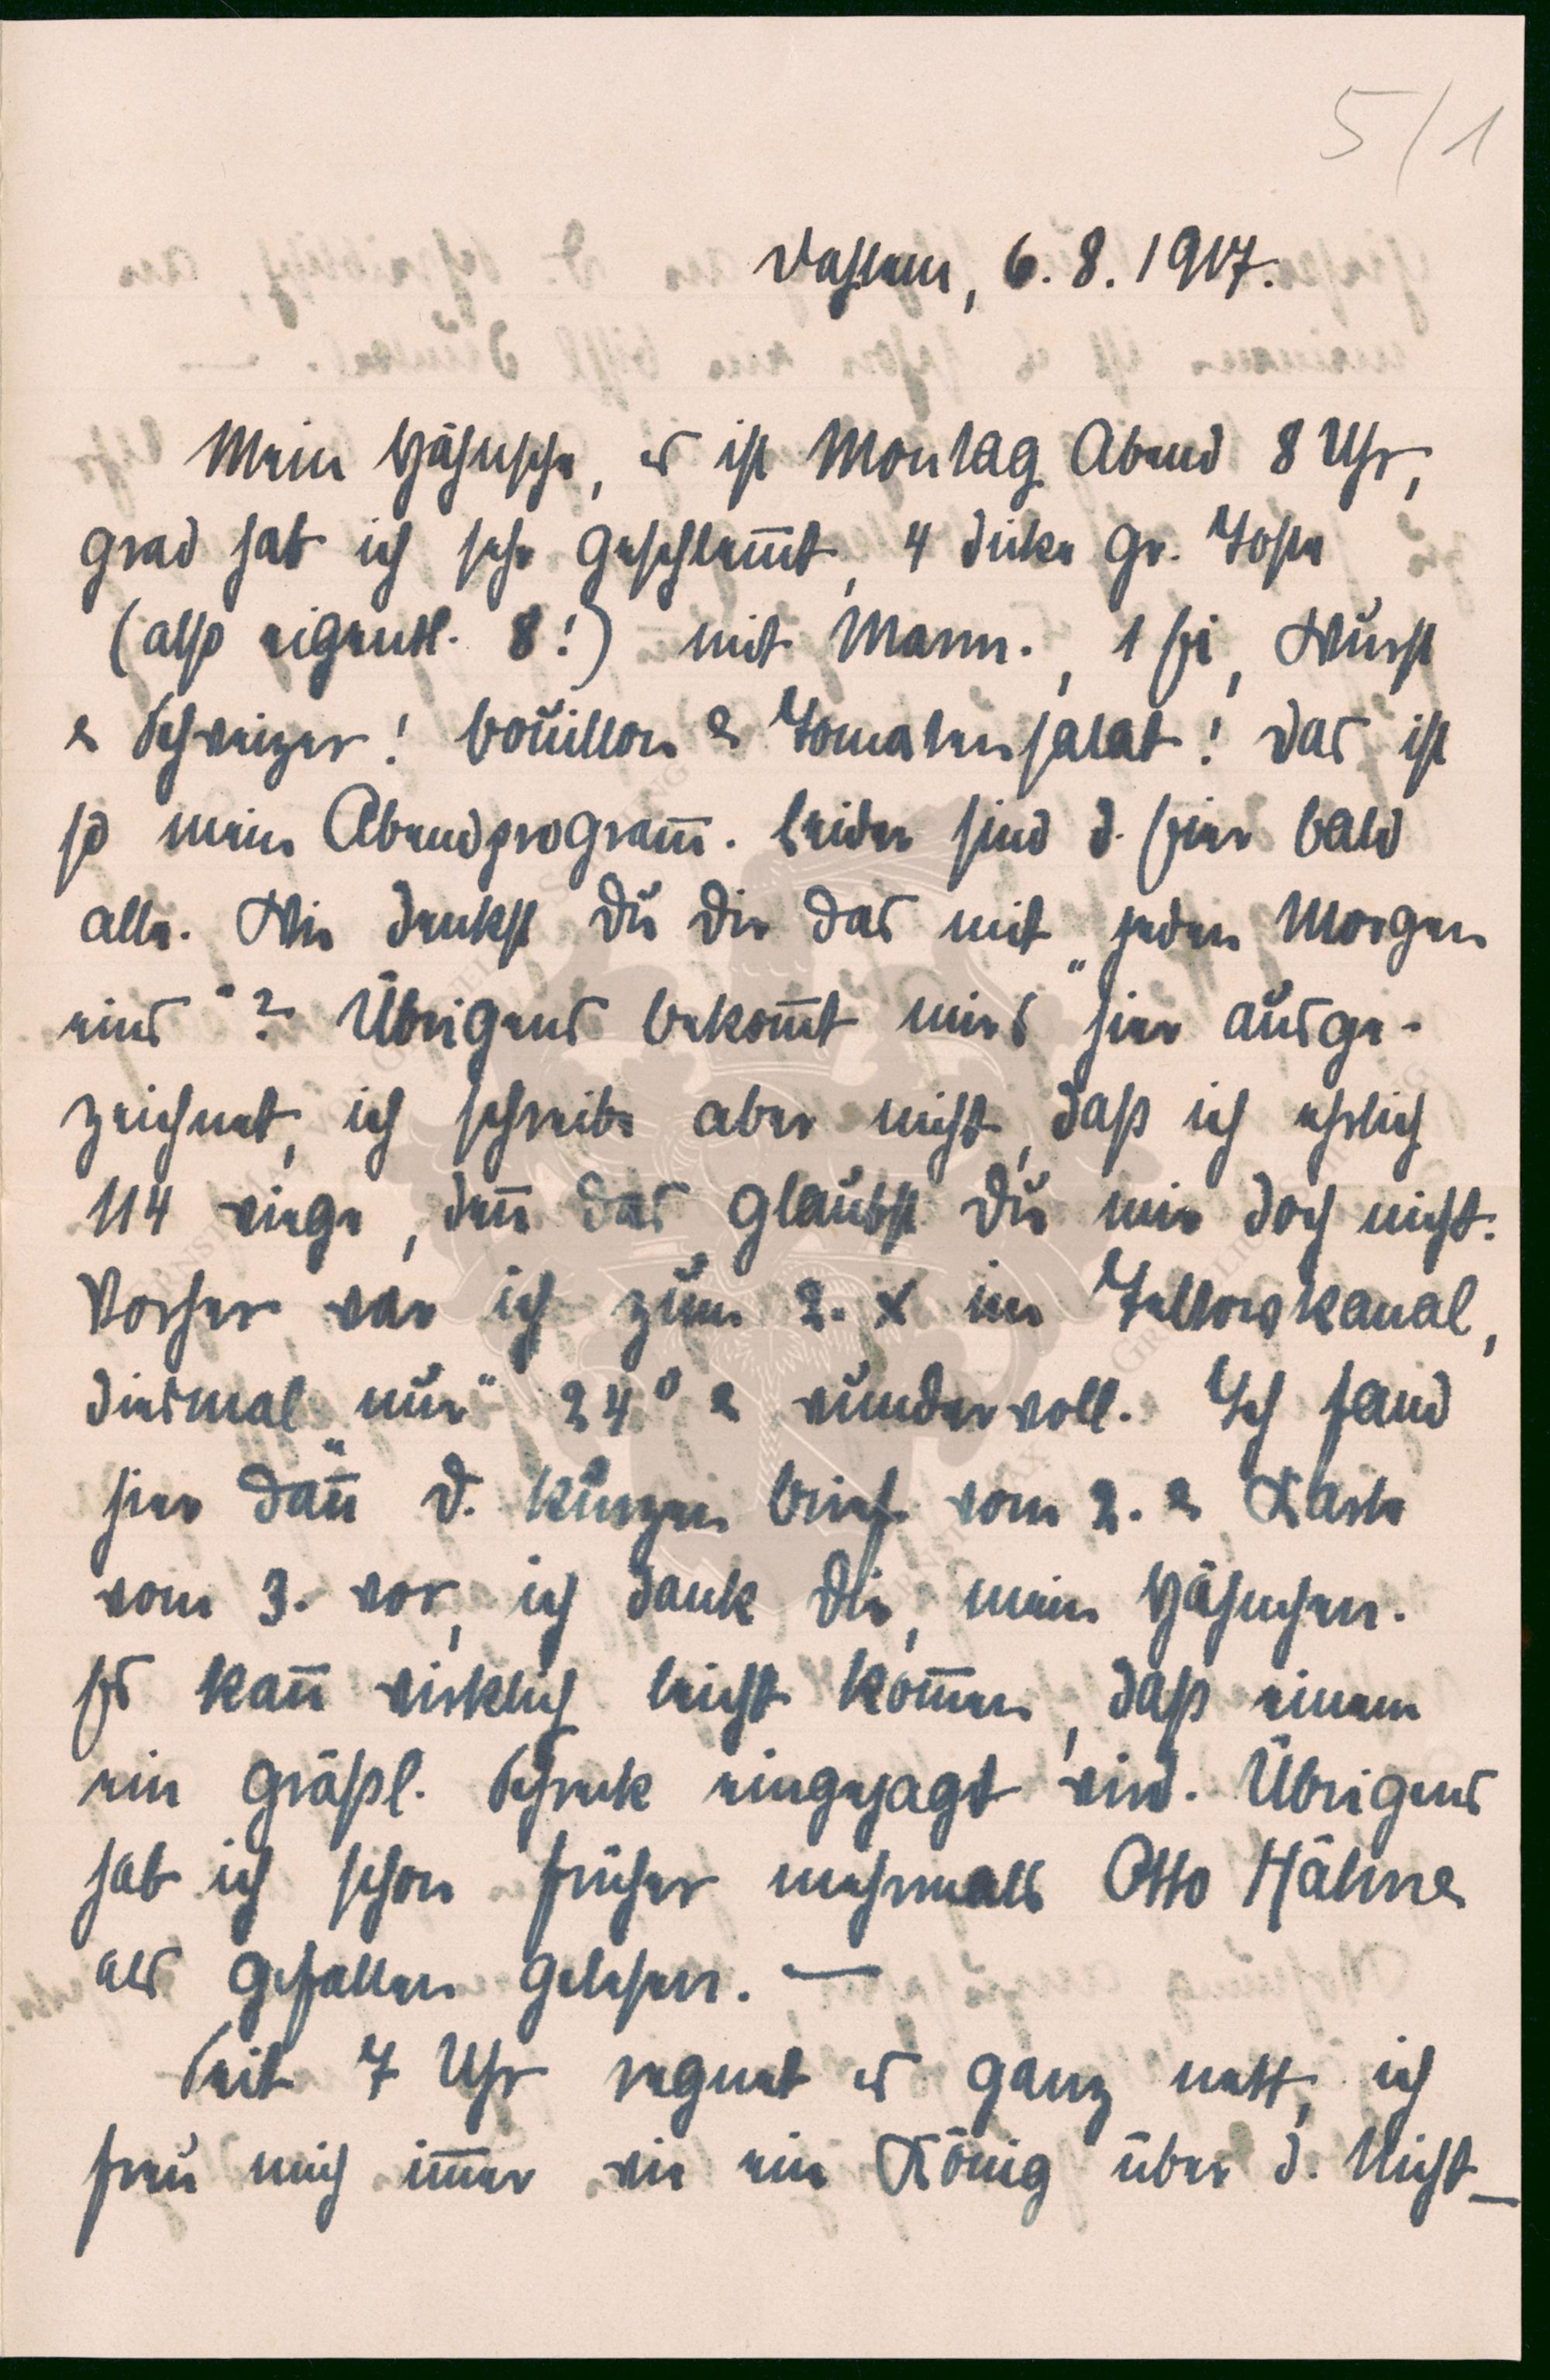 5/1
Dahlem, 6. 8. 1917.
Mein Hähnsche, es ist Montag Abend 8 Uhr,
grad hab ich sehr geschlem̅t, 4 dicke gr. Toste
(also eigentl. 8!) mit Marm., 1 Ei, Wurst
& Schweizer! Bouillon & Tomatensalat! Das ist
so mein Abendprogram̅. Leider sind d. Eier bald
alle. Wie denkst Du Dir das mit „jeden Morgen
eins"? Übrigens bekom̅t mirs hier ausge-
zeichnet, ich schreibe aber nicht, daß ich ehrlich
114 wiege, den̅ das glaubst Du mir doch nicht.
Vorher war ich zum 2. x im Teltowkanal,
diesmal „nur" 24° & wundervoll. Ich fand
hier dan̅ d. kurzen Brief vom 2. & Karte
vom 3. vor, ich dank Dir, mein Hähnchen.
Es kan̅ wirklich leicht kom̅en, daß einem
ein gräßl. Schreck eingejagt wird. Übrigens
hab ich schon früher mehrmals Otto Hähne
als gefallen gelesen. —
Seit 7 Uhr regnet es ganz nett, ich
freu mich im̅er wie ein König über d. Nicht-